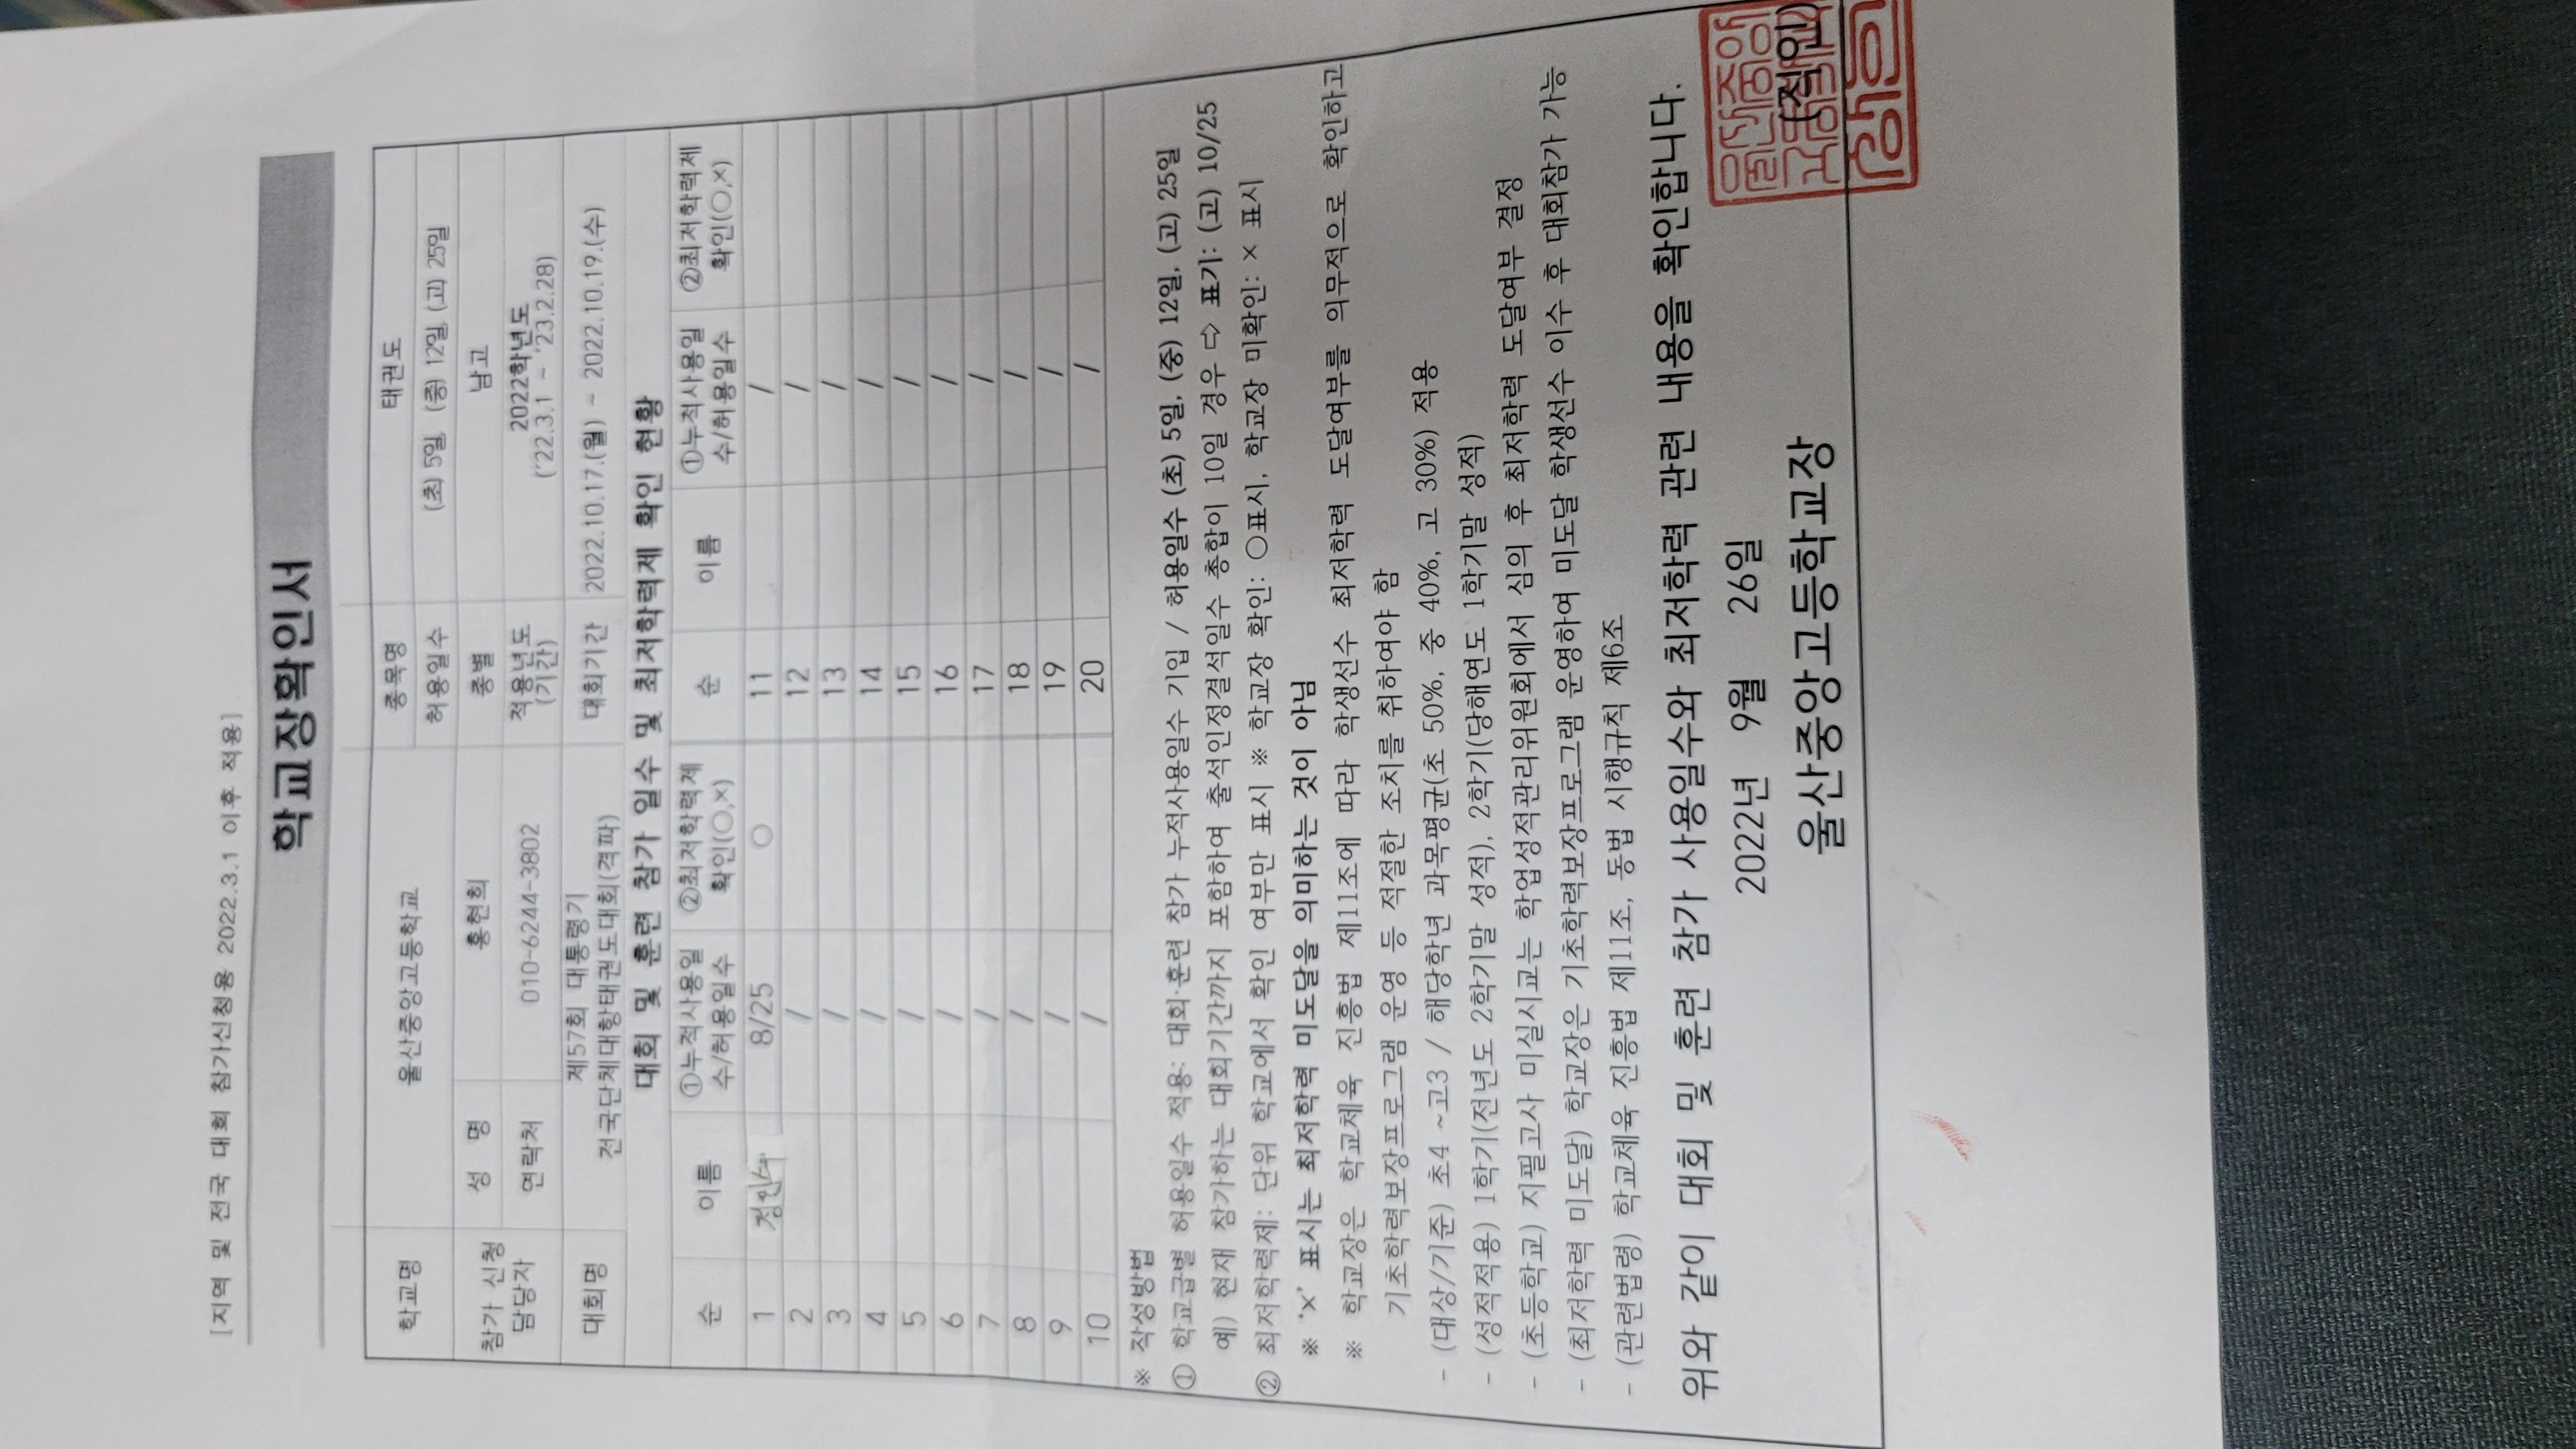 [지역 및 전국 대회 참가신청용 2022.3.1 이후 적용]
학교장확인서
학교명 울산중앙고등학교 종목명 태권도
허용일수 (초) 5일 (중) 12일 (고) 25일
참가 신청 담당자 성 명 홍현희 종별 남고
연락처 010-6244-3802 적용년도 (기간) 2022학년도 ('22.3.1 ~ '23.2.28)
대회명 제57회 대통령기 전국단체대항태권도대회(격파) 대회기간 2022.10.17.(월) ~ 2022.10.19.(수)
대회 및 훈련 참가 일수 및 최저학력제 확인 현황
순 이름 ①누적사용일수/허용일수 ②최저학력제 확인(○,×) 순 이름 ①누적사용일수/허용일수 ②최저학력제 확인(○,×)
1 8/25 ○ 11 /
2 / 12 /
3 / 13 /
4 / 14 /
5 / 15 /
6 / 16 /
7 / 17 /
8 / 18 /
9 / 19 /
10 / 20 /
※ 작성방법
① 학교급별 허용일수 적용: 대회·훈련 참가 누적사용일수 기입 / 허용일수 (초) 5일, (중) 12일, (고) 25일
예) 현재 참가하는 대회기간까지 포함하여 출석인정결석일수 총합이 10일 경우 ⇨ 표기: (고) 10/25
② 최저학력제: 단위 학교에서 확인 여부만 표시 ※ 학교장 확인: ○표시, 학교장 미확인: × 표시
※ '×' 표시는 최저학력 미도달을 의미하는 것이 아님
※ 학교장은 학교체육 진흥법 제11조에 따라 학생선수 최저학력 도달여부를 의무적으로 확인하고
기초학력보장프로그램 운영 등 적절한 조치를 취하여야 함
- (대상/기준) 초4 ~고3 / 해당학년 과목평균(초 50%, 중 40%, 고 30%) 적용
- (성적적용) 1학기(전년도 2학기말 성적), 2학기(당해연도 1학기말 성적)
- (초등학교) 지필고사 미실시교는 학업성적관리위원회에서 심의 후 최저학력 도달여부 결정
- (최저학력 미도달) 학교장은 기초학력보장프로그램 운영하여 미도달 학생선수 이수 후 대회참가 가능
- (관련법령) 학교체육 진흥법 제11조, 동법 시행규칙 제6조
위와 같이 대회 및 훈련 참가 사용일수와 최저학력 관련 내용을 확인합니다.
2022년 9월 26일
울산중앙고등학교장 (직인)